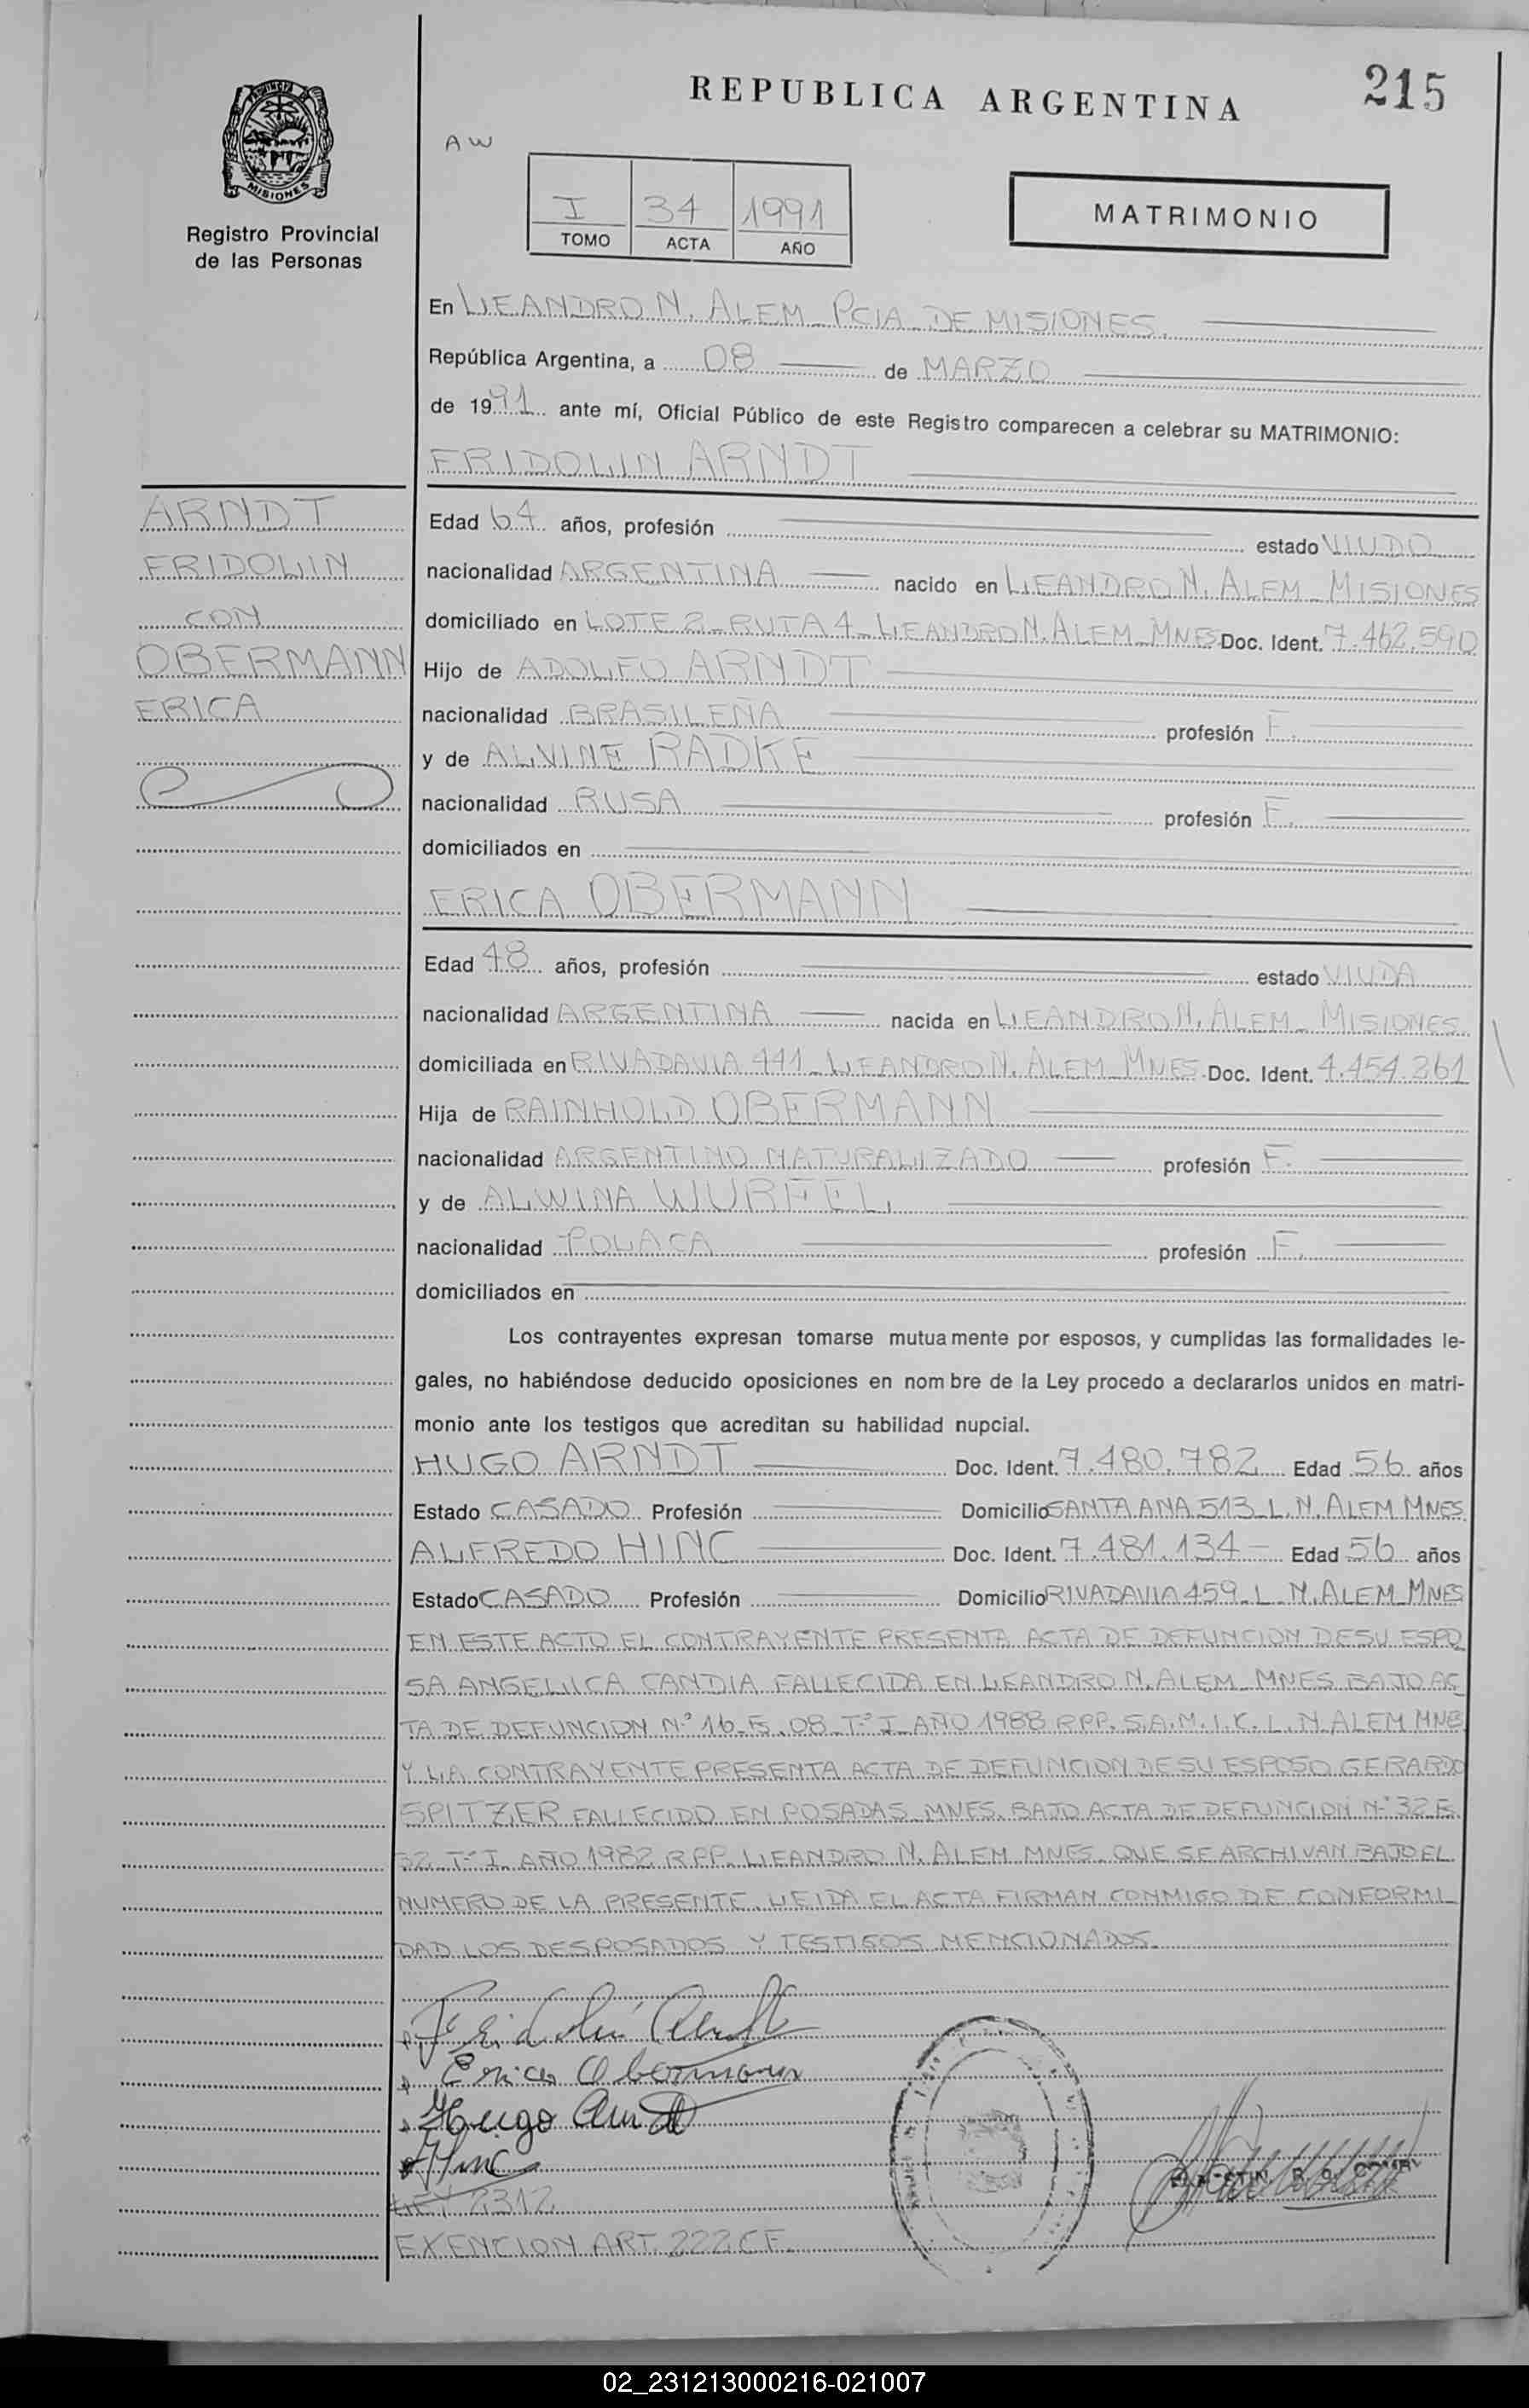 215
REPUBLICA ARGENTINA
AW
MISIONES
Registro Provincial
de las Personas
I 34 1991
TOMO ACTA AÑO
MATRIMONIO
En LEANDRO N. ALEM PCIA DE MISIONES.
República Argentina, a 08 de MARZO
de 1991 ante mí, Oficial Público de este Registro comparecen a celebrar su MATRIMONIO:
FRIDOLIN ARNDT
ARNDT
FRIDOLIN
CON
OBERMANN
ERICA
Edad 64 años, profesión estado VIUDO
nacionalidad ARGENTINA nacido en LEANDRO N. ALEM - MISIONES
domiciliado en LOTE 2 - RUTA 4 - LEANDRO N. ALEM - MNES Doc. Ident. 7.462.590
Hijo de ADOLFO ARNDT
nacionalidad BRASILEÑA profesión F.
y de ALVINE RADKE
nacionalidad RUSA profesión F.
domiciliados en
ERICA OBERMANN
Edad 48 años, profesión estado VIUDA
nacionalidad ARGENTINA nacida en LEANDRO N. ALEM - MISIONES
domiciliada en RIVADAVIA 441 - LEANDRO N. ALEM MNES. Doc. Ident. 4.454.261
Hija de RAINHOLD OBERMANN
nacionalidad ARGENTINO NATURALIZADO profesión F.
y de ALWINA WURFEL
nacionalidad POLACA profesión F.
domiciliados en
Los contrayentes expresan tomarse mutuamente por esposos, y cumplidas las formalidades le-
gales, no habiéndose deducido oposiciones en nombre de la Ley procedo a declararlos unidos en matri-
monio ante los testigos que acreditan su habilidad nupcial.
HUGO ARNDT Doc. Ident. 7.480.782 Edad 56 años
Estado CASADO Profesión Domicilio SANTA ANA 513 - L. N. ALEM MNES
ALFREDO HINC Doc. Ident. 7.481.134 - Edad 56 años
Estado CASADO Profesión Domicilio RIVADAVIA 459 - L. N. ALEM - MNES
EN ESTE ACTO EL CONTRAYENTE PRESENTA ACTA DE DEFUNCION DE SU ESPO
SA ANGELICA CANDIA FALLECIDA EN LEANDRO N. ALEM - MNES BAJO AC
TA DE DEFUNCION Nº 16 - F. 08 - Tº I AÑO 1988 RPP. S.A.M.I.C. L. N. ALEM MNE
Y LA CONTRAYENTE PRESENTA ACTA DE DEFUNCION DE SU ESPOSO GERARDO
SPITZER FALLECIDO EN POSADAS - MNES. BAJO ACTA DE DEFUNCION Nº 32 F.
32 Tº I AÑO 1982 RPP - LEANDRO N. ALEM MNES - QUE SE ARCHIVAN BAJO EL
NUMERO DE LA PRESENTE. LEIDA EL ACTA FIRMAN CONMIGO DE CONFORMI
DAD LOS DESPOSADOS Y TESTIGOS MENCIONADOS.
Fridolin Arndt
Erica Obermann
Hugo Arndt
Hinc
LEY 2312
EXENCION ART. 222 C.F.
02_231213000216-021007